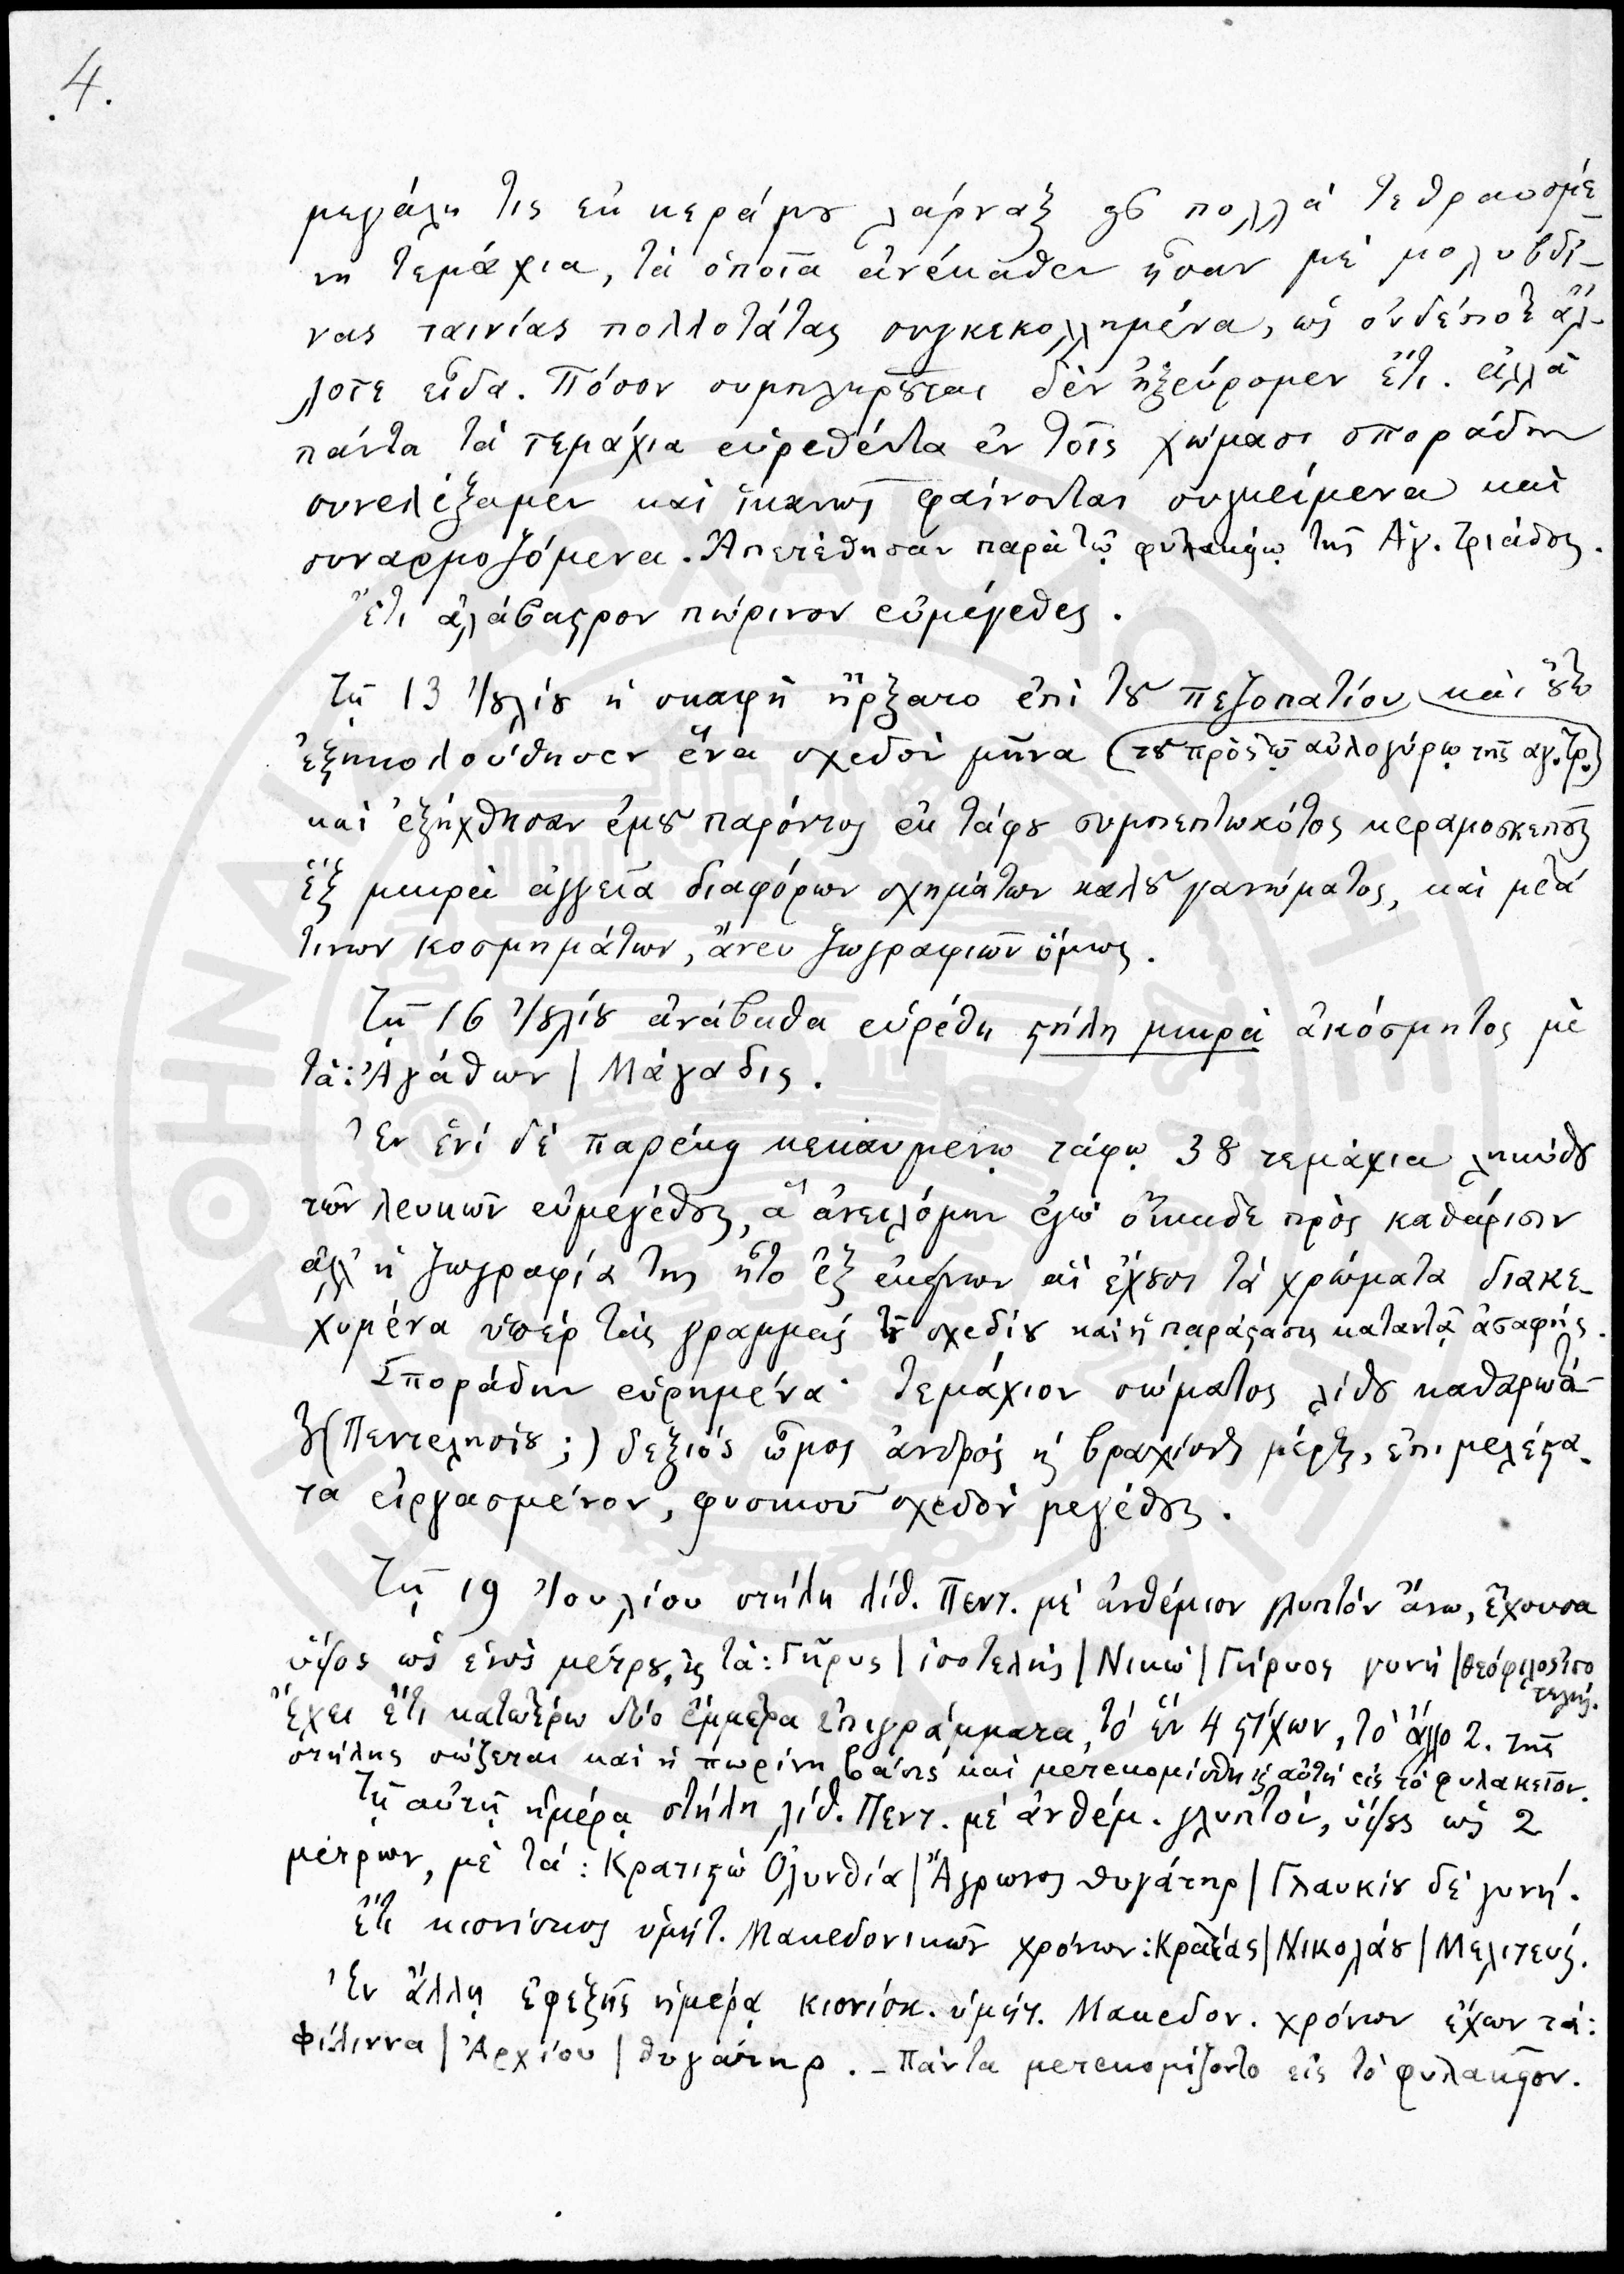 .4.
μεγάλη τις ἐκ κεράμου λάρναξ εἰς πολλὰ τεθραυσμέ-
νη τεμάχια, τὰ ὁποῖα ἀνέκαθεν ἦσαν μὲ μολυβδί-
νας ταινίας πολλοτάτας συγκεκολλημένα, ὡς οὐδέποτε ἄλ-
λοτε εἶδα. Πόσον συμπληροῦται δὲν ἠξεύρομεν ἔτι. ἀλλὰ
πάντα τὰ τεμάχια εὑρεθέντα ἐν τοῖς χώμασι σποράδην
συνελέξαμεν καὶ ἱκανῶς φαίνονται συγκείμενα καὶ
συναρμοζόμενα. Ἀπετέθησαν παρὰ τῷ φυλακείῳ τῆς Ἁγ. Τριάδος.
Ἔτι ἀλάβαστρον πώρινον εὐμέγεθες.
Τῇ 13 Ἰουλίου ἡ σκαφὴ ἤρξατο ἐπὶ τοῦ πεζοπατίου καὶ οὕτω
ἐξηκολούθησεν ἕνα σχεδὸν μῆνα (τοῦ πρὸς τῷ αὐλογύρῳ τῆς αγ. Τρ.)
καὶ ἐξήχθησαν ἐμοῦ παρόντος ἐκ τάφου συμπεπτωκότος κεραμοσκεποῦς
ἓξ μικρὰ ἀγγεῖα διαφόρων σχημάτων καλοῦ γανώματος, καὶ μετά
τινων κοσμημάτων, ἄνευ ζωγραφιῶν ὅμως.
Τῇ 16 Ἰουλίου ἀνάβαθα εὑρέθη στήλη μικρὰ ἀκόσμητος μὲ
τά: Ἀγάθων | Μάγαδις.
Ἐν ἑνὶ δὲ παρέκει κεκαυμένῳ τάφῳ 38 τεμάχια ληκύθου
τῶν λευκῶν εὐμεγέθους, ἃ ἀνειλόμην ἐγὼ οἴκαδε πρὸς καθάρισιν
ἀλλ' ἡ ζωγραφία της ἦτο ἐξ ἐκείνων αἳ ἔχουσι τὰ χρώματα διακε-
χυμένα ὑπὲρ τὰς γραμμὰς τοῦ σχεδίου καὶ ἡ παράστασις καταντᾷ ἀσαφής.
Σποράδην εὑρημένα· τεμάχιον σώματος λίθου καθαρωτά-
του (Πεντελησίου;) δεξιὸς ὦμος ἀνδρὸς ἢ βραχίονος μέρος, ἐπιμελέστα-
τα εἰργασμένον, φυσικοῦ σχεδὸν μεγέθους.
Τῇ 19 Ἰουλίου στήλη λίθ. Πεντ. μὲ ἀνθέμιον γλυπτὸν ἄνω, ἔχουσα
ὕψος ὡς ἑνὸς μέτρου, καὶ τά: Γῆρυς | ἰσοτελὴς | Νικὼ | Γήρυος γυνή | Θεόφιλος ἰσο
τελής.
Ἔχει ἔτι κατωτέρω δύο ἔμμετρα ἐπιγράμματα, τὸ ἓν 4 στίχων, τὸ ἄλλο 2. τῆς
στήλης σώζεται καὶ ἡ πωρίνη βάσις καὶ μετεκομίσθη καὶ αὐτὴ εἰς τὸ φυλακεῖον.
Τῇ αὐτῇ ἡμέρᾳ στήλη λίθ. Πεντ. μὲ ἀνθέμ. γλυπτόν, ὕψους ὡς 2
μέτρων, μὲ τά: Κρατιστὼ Ὀλυνθία | Ἄγρωνος θυγάτηρ | Γλαυκίου δὲ γυνή.
Ἔτι κιονίσκος ὑμήτ. Μακεδονικῶν χρόνων: Κρατέας | Νικολάου | Μελιτεύς.
Ἐν ἄλλῃ ἐφεξῆς ἡμέρᾳ κιονίσκ. ὑμήτ. Μακεδον. χρόνων ἔχων τά:
Φίλιννα | Ἀρχίου | θυγάτηρ. – Πάντα μετεκομίζοντο εἰς τὸ φυλακεῖον.
ΑΘΗΝΑΙ ΑΡΧΑΙΟΛΟΓΙΚΗ ΕΤΑΙΡΕΙΑ